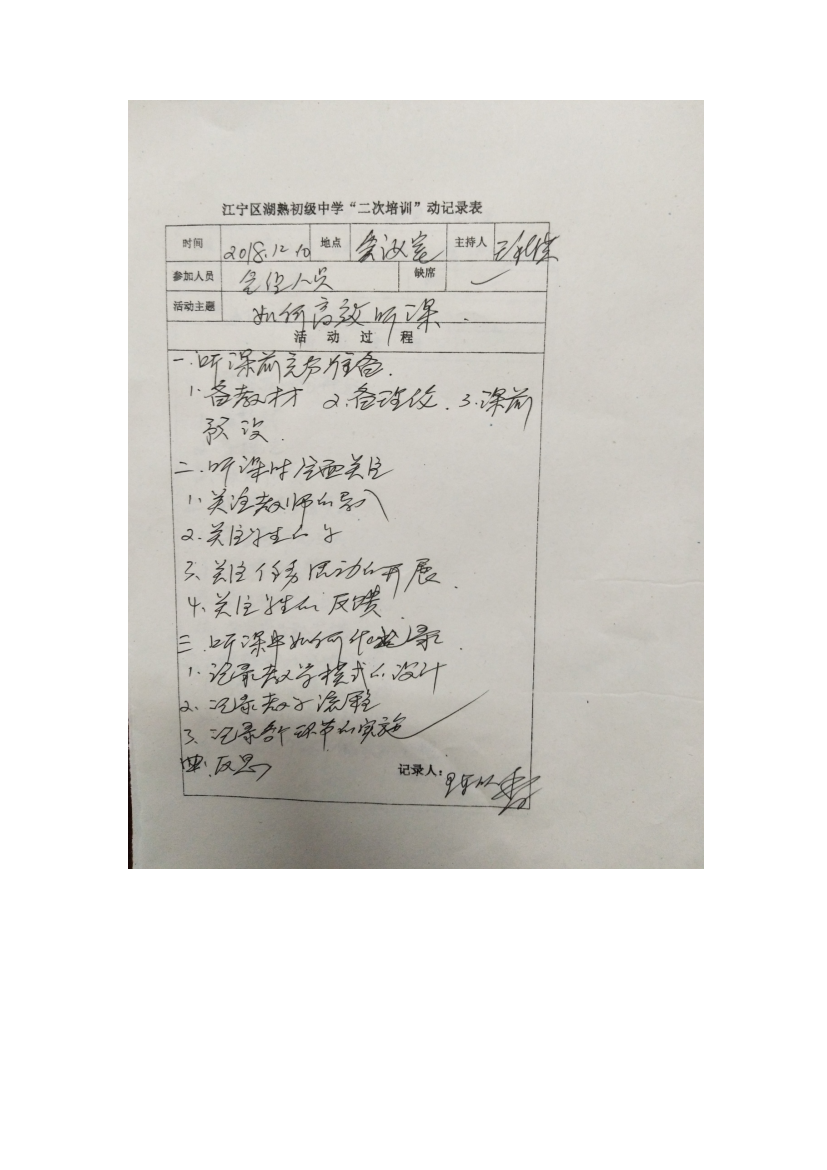 江宁区湖熟初级中学“二次培训”动记录表
时间 2018.12.10 地点 会议室 主持人
参加人员 全组人员 缺席
活动主题 如何高效听课.
活动过程
一.听课前充分准备.
1.备教材 2.备理论.3.课前
预设.
二.听课时应有关注
1.关注教师的导入
2.关注学生的学
3.关注任务活动的开展.
4.关注学生的反馈.
三.听课中如何作记录.
1.记录教学模式的设计
2.记录教学流程
3.记录各个环节的实施
四.反思
记录人：